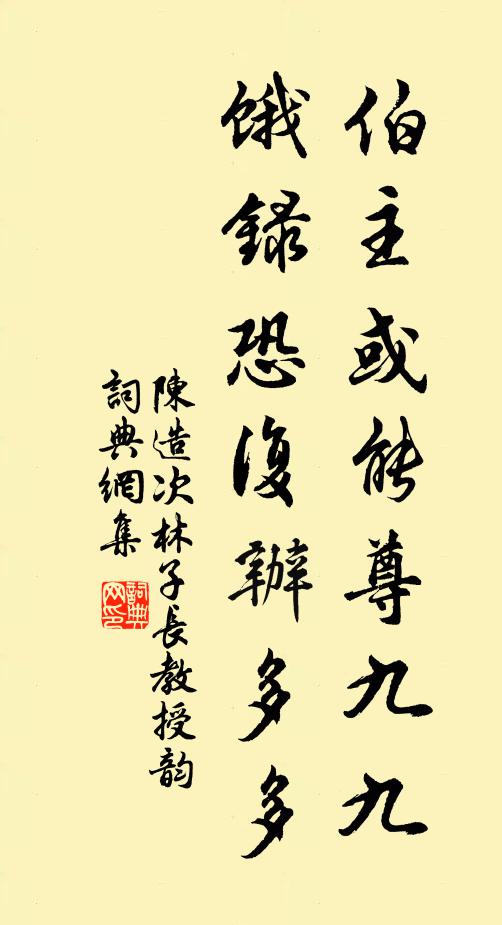 伯主或能尊九九
餓錄恐復辦多多
陳造次林子長教授韵
詞典網集
詞典
网印